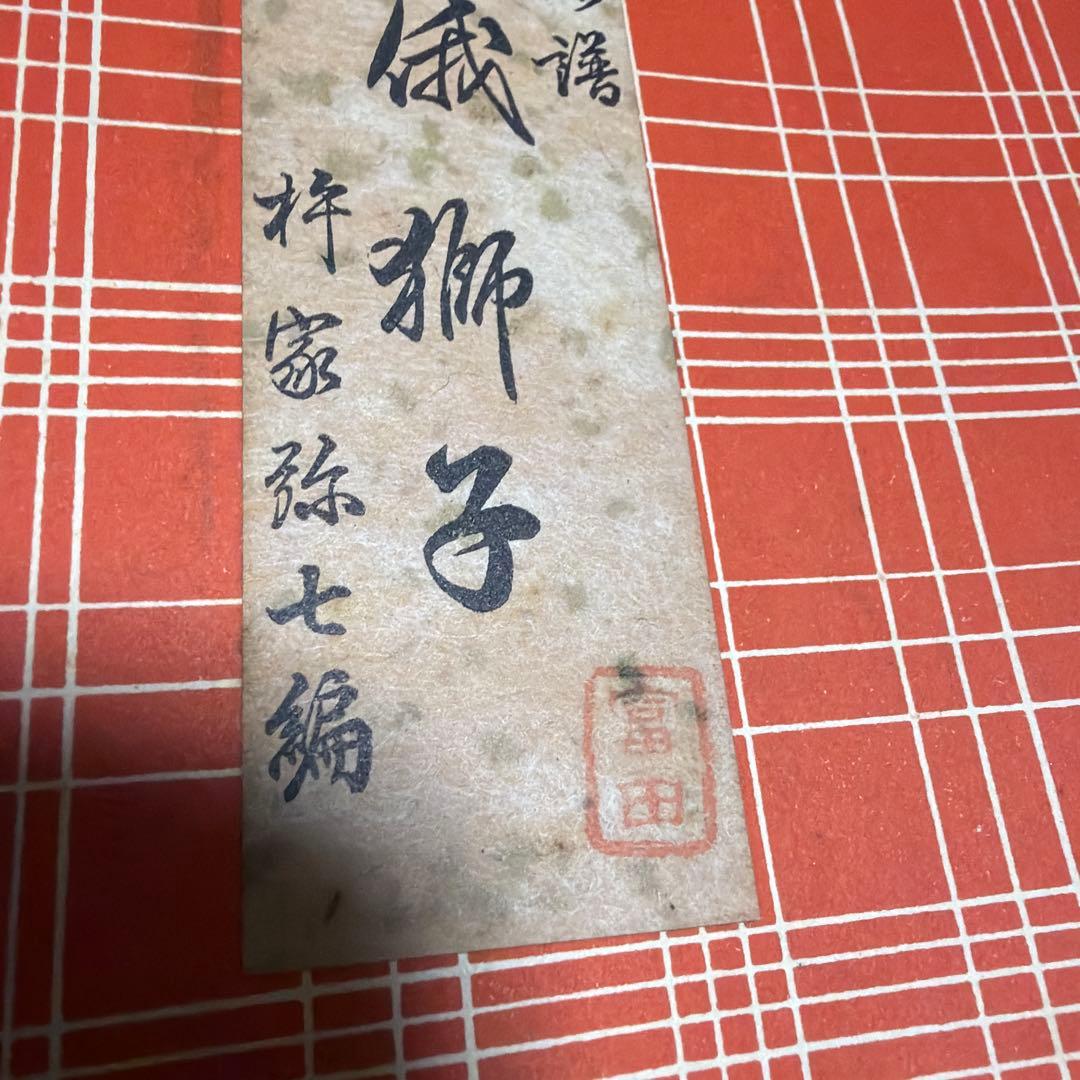 譜
俄獅子
杵家弥七編
富田